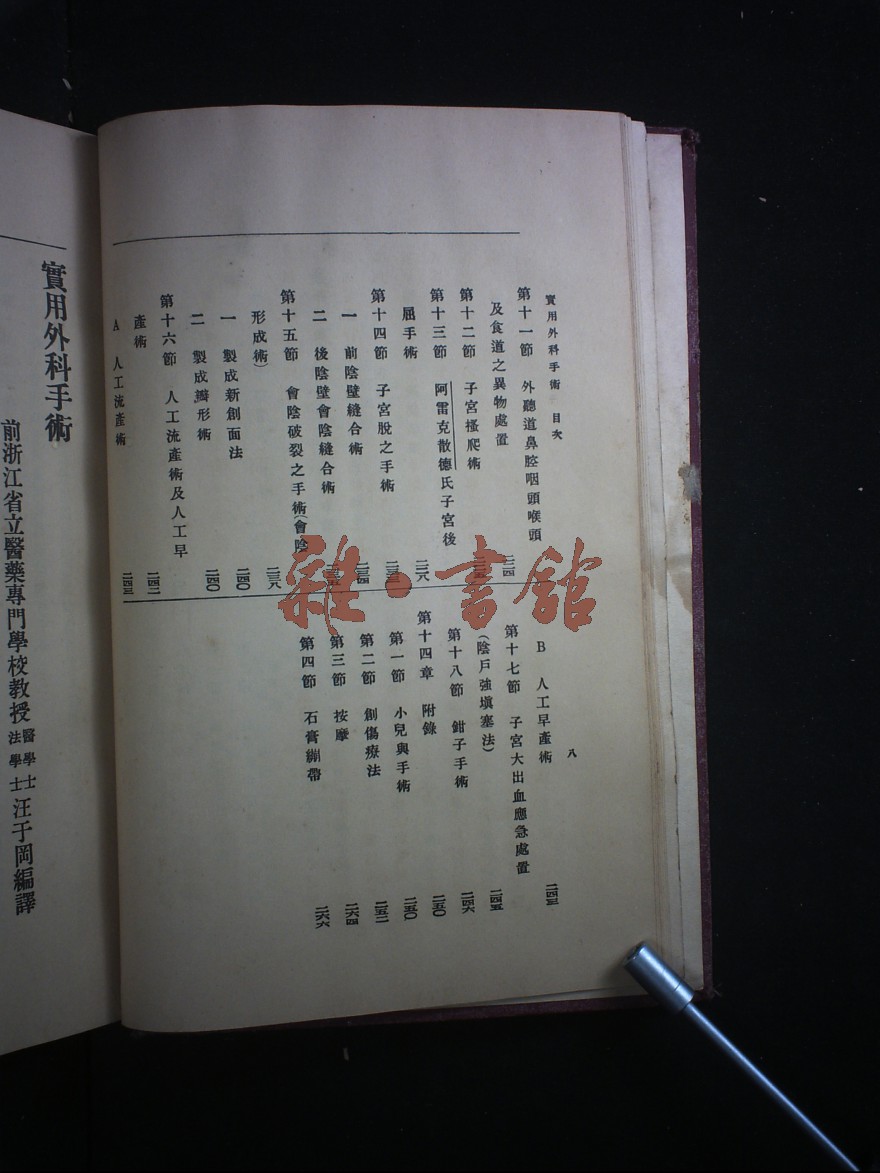 實用外科手術 目次
八
第十一節 外聽道鼻腔咽頭喉頭
及食道之異物處置
第十二節 子宮搔爬術
第十三節 阿雷克散德氏子宮後
屈手術 二三八
第十四節 子宮脫之手術
一 前陰壁縫合術
二 後陰壁會陰縫合術
第十五節 會陰破裂之手術(會陰
形成術) 二三八
一 製成新創面法 二四〇
二 製成瓣形術 二四〇
第十六節 人工流產術及人工早
產術 二四二
A 人工流產術 二四三
B 人工早產術 二四三
第十七節 子宮大出血應急處置
(陰戶強填塞法) 二四五
第十八節 鉗子手術 二四六
第十四章 附錄 二五〇
第一節 小兒與手術 二五〇
第二節 創傷療法 二五二
第三節 按摩 二六四
第四節 石膏繃帶 二六六
實用外科手術
前浙江省立醫藥專門學校教授醫學士法學士汪于岡編譯
雜·書館